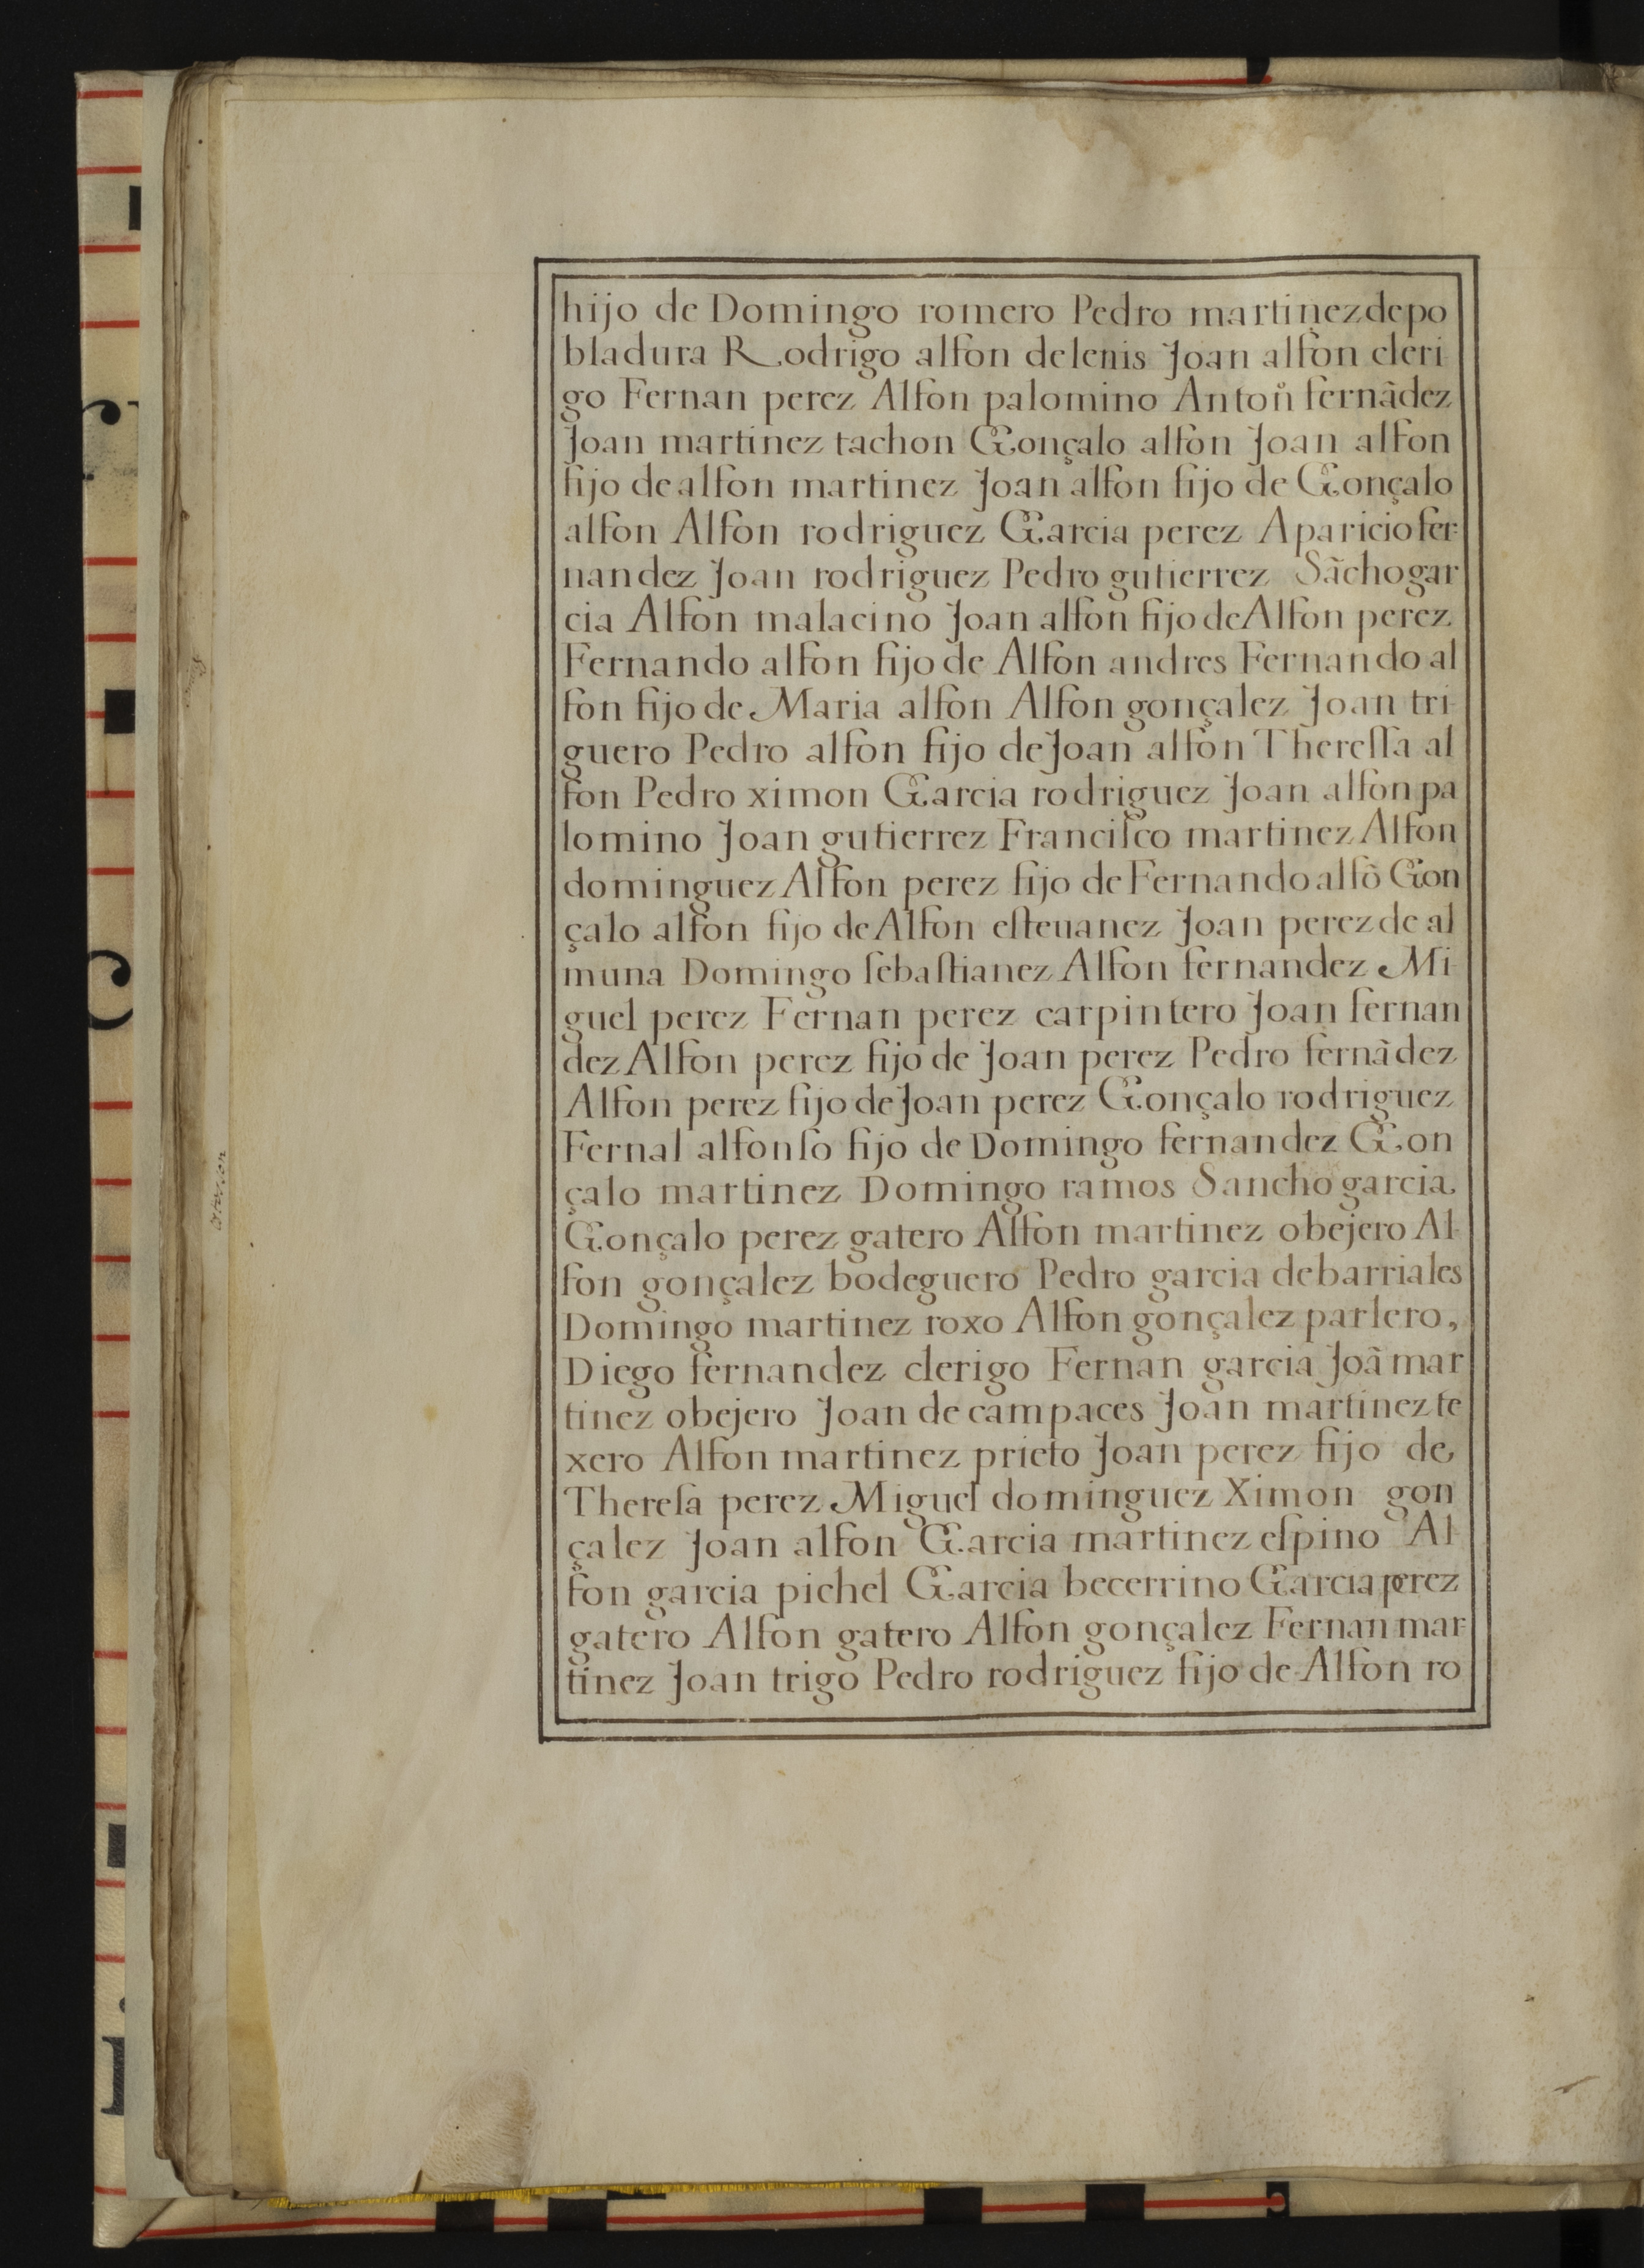 hijo de Domingo romero Pedro martinez de po
bladura Rodrigo alfon de lenis Joan alfon cleri
go Fernan perez Alfon palomino Anton fernãdez
Joan martinez tachon Gonçalo alfon Joan alfon
fijo de alfon martinez Joan alfon fijo de Gonçalo
alfon Alfon rodriguez Garcia perez Aparicio fer-
nandez Joan rodriguez Pedro gutierrez Sãcho gar
cia Alfon malacino Joan alfon fijo de Alfon perez
Fernando alfon fijo de Alfon andres Fernando al
fon fijo de Maria alfon Alfon gonçalez Joan tri-
guero Pedro alfon fijo de Joan alfon Thereſſa al
fon Pedro ximon Garcia rodriguez Joan alfon pa
lomino Joan gutierrez Franciſco martinez Alfon
dominguez Alfon perez fijo de Fernando alfõ Gon
çalo alfon fijo de Alfon eſteuanez Joan perez de al
muna Domingo ſebaſtianez Alfon fernandez Mi-
guel perez Fernan perez carpintero Joan fernan
dez Alfon perez fijo de Joan perez Pedro fernãdez
Alfon perez fijo de Joan perez Gonçalo rodriguez
Fernal alfonſo fijo de Domingo fernandez Gon
çalo martinez Domingo ramos Sancho garcia
Gonçalo perez gatero Alfon martinez obejero Al-
fon gonçalez bodeguero Pedro garcia de barriales
Domingo martinez roxo Alfon gonçalez parlero,
Diego fernandez clerigo Fernan garcia Joã mar
tinez obejero Joan de campaces Joan martinez te
xero Alfon martinez prieto Joan perez fijo de
Thereſa perez Miguel dominguez Ximon gon
çalez Joan alfon Garcia martinez eſpino Al-
fon garcia pichel Garcia becerrino Garcia perez
gatero Alfon gatero Alfon gonçalez Fernan mar-
tinez Joan trigo Pedro rodriguez fijo de Alfon ro